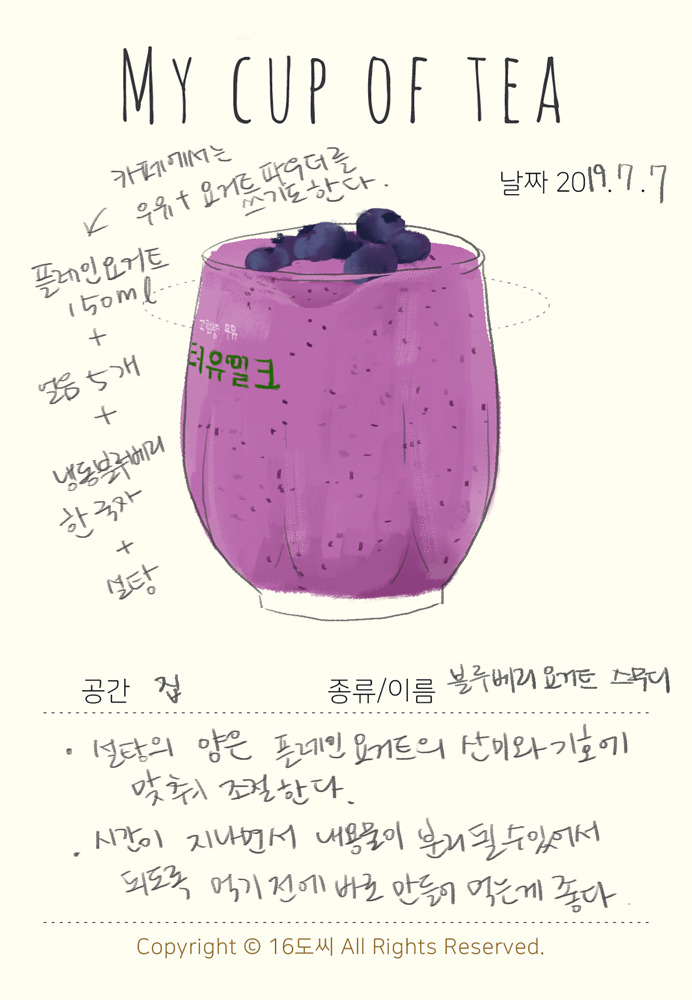 MY CUP OF TEA
카페에서는
우유+ 요거트 파우더를
쓰기도한다.
날짜 2019.7.7
플레인요거트
150ml
+
얼음 5개
+
냉동블루베리
한 국자
+
설탕
고칼슘 우유
터유밀크
공간 집
종류/이름 블루베리 요거트 스무디
· 설탕의 양은 플레인 요거트의 산미와 기호에
맞춰 조절한다.
· 시간이 지나면서 내용물이 분리될수있어서
되도록 먹기 전에 바로 만들어 먹는게 좋다
Copyright © 16도씨 All Rights Reserved.